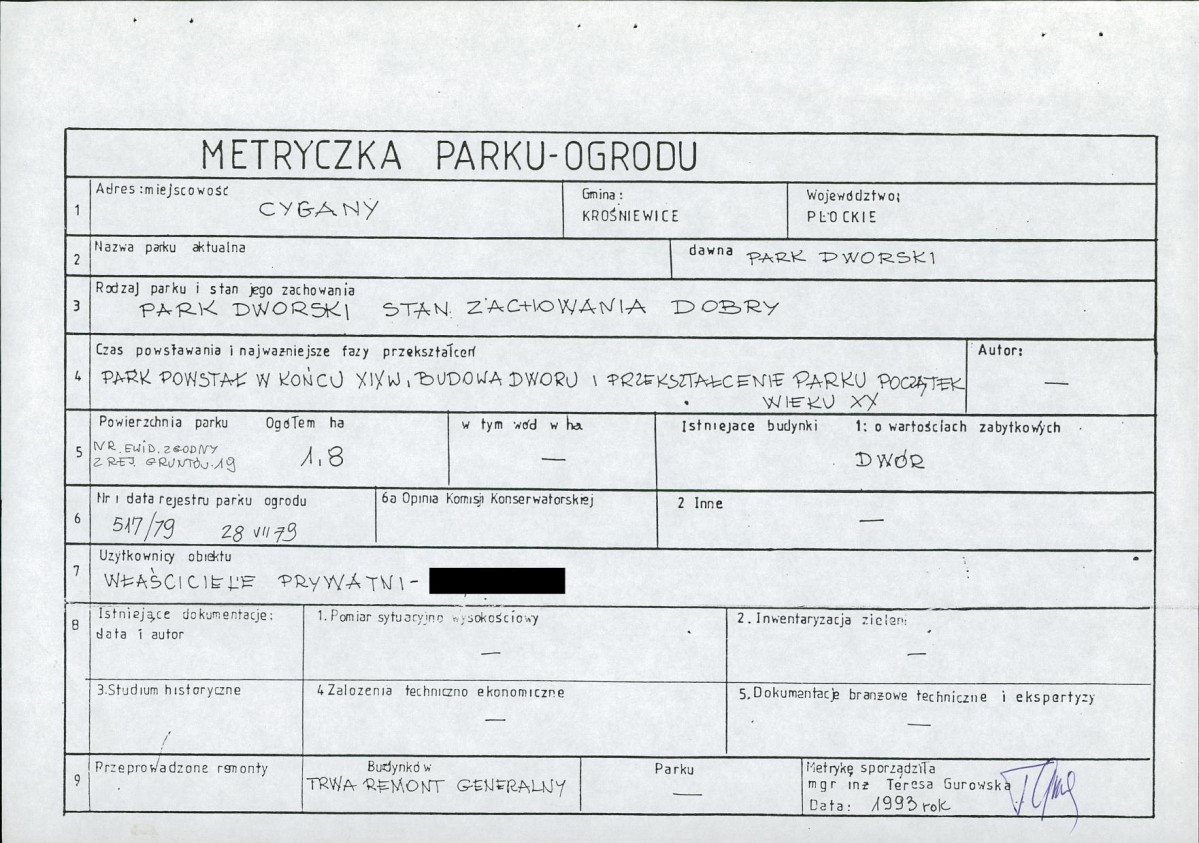 METRYCZKA PARKU-OGRODU
1
Adres:miejscowość
CYGANY
Gmina:
KROŚNIEWICE
Województwo:
PŁOCKIE
2
Nazwa parku aktualna
dawna PARK DWORSKI
3
Rodzaj parku i stan jego zachowania
PARK DWORSKI STAN ZACHOWANIA DOBRY
4
Czas powstawania i najważniejsze fazy przekształceń
PARK POWSTAŁ W KOŃCU XIXW, BUDOWA DWORU I PRZEKSZTAŁCENIE PARKU POCZĄTEK
WIEKU XX
Autor:
—
5
Powierzchnia parku Ogółem ha
NR. EWID. ZGODNY
Z REJ. GRUNTÓW.19
1,8
w tym wód w ha
—
Istniejace budynki 1: o wartościach zabytkowych
DWÓR
6
Nr i data rejestru parku ogrodu
517/79 28 VII 79
6a Opinia Komisji Konserwatorskiej
2 Inne
—
7
Uzytkownicy obiektu
WŁAŚCICIELE PRYWATNI-
8
Istniejące dokumentacje:
data i autor
1.Pomiar sytuacyjno wysokościowy
—
2. Inwentaryzacja zieleni
—
3.Studium historyczne
4 Zalozenia techniczno ekonomiczne
—
5. Dokumentacje branzowe techniczne i ekspertyzy
—
9
Przeprowadzone remonty
Budynków
TRWA REMONT GENERALNY
Parku
—
Metrykę sporządziła
mgr inż Teresa Gurowska
Data: 1993 rok